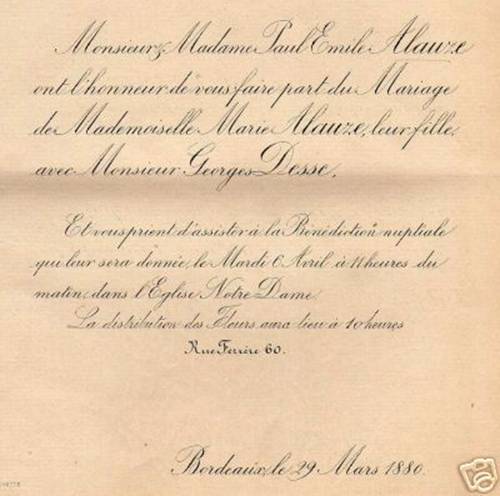 Monsieur & Madame Paul Emile Alauze
ont l'honneur de vous faire part du Mariage
de Mademoiselle Marie Alauze, leur fille,
avec Monsieur Georges Desse.
Et vous prient d'assister à la Bénédiction nuptiale
qui leur sera donnée, le Mardi 6 Avril à 11 heures du
matin, dans l'Eglise Notre Dame
La distribution des Fleurs aura lieu à 10 heures
Rue Ferrère 60.
Bordeaux, le 29 Mars 1880.